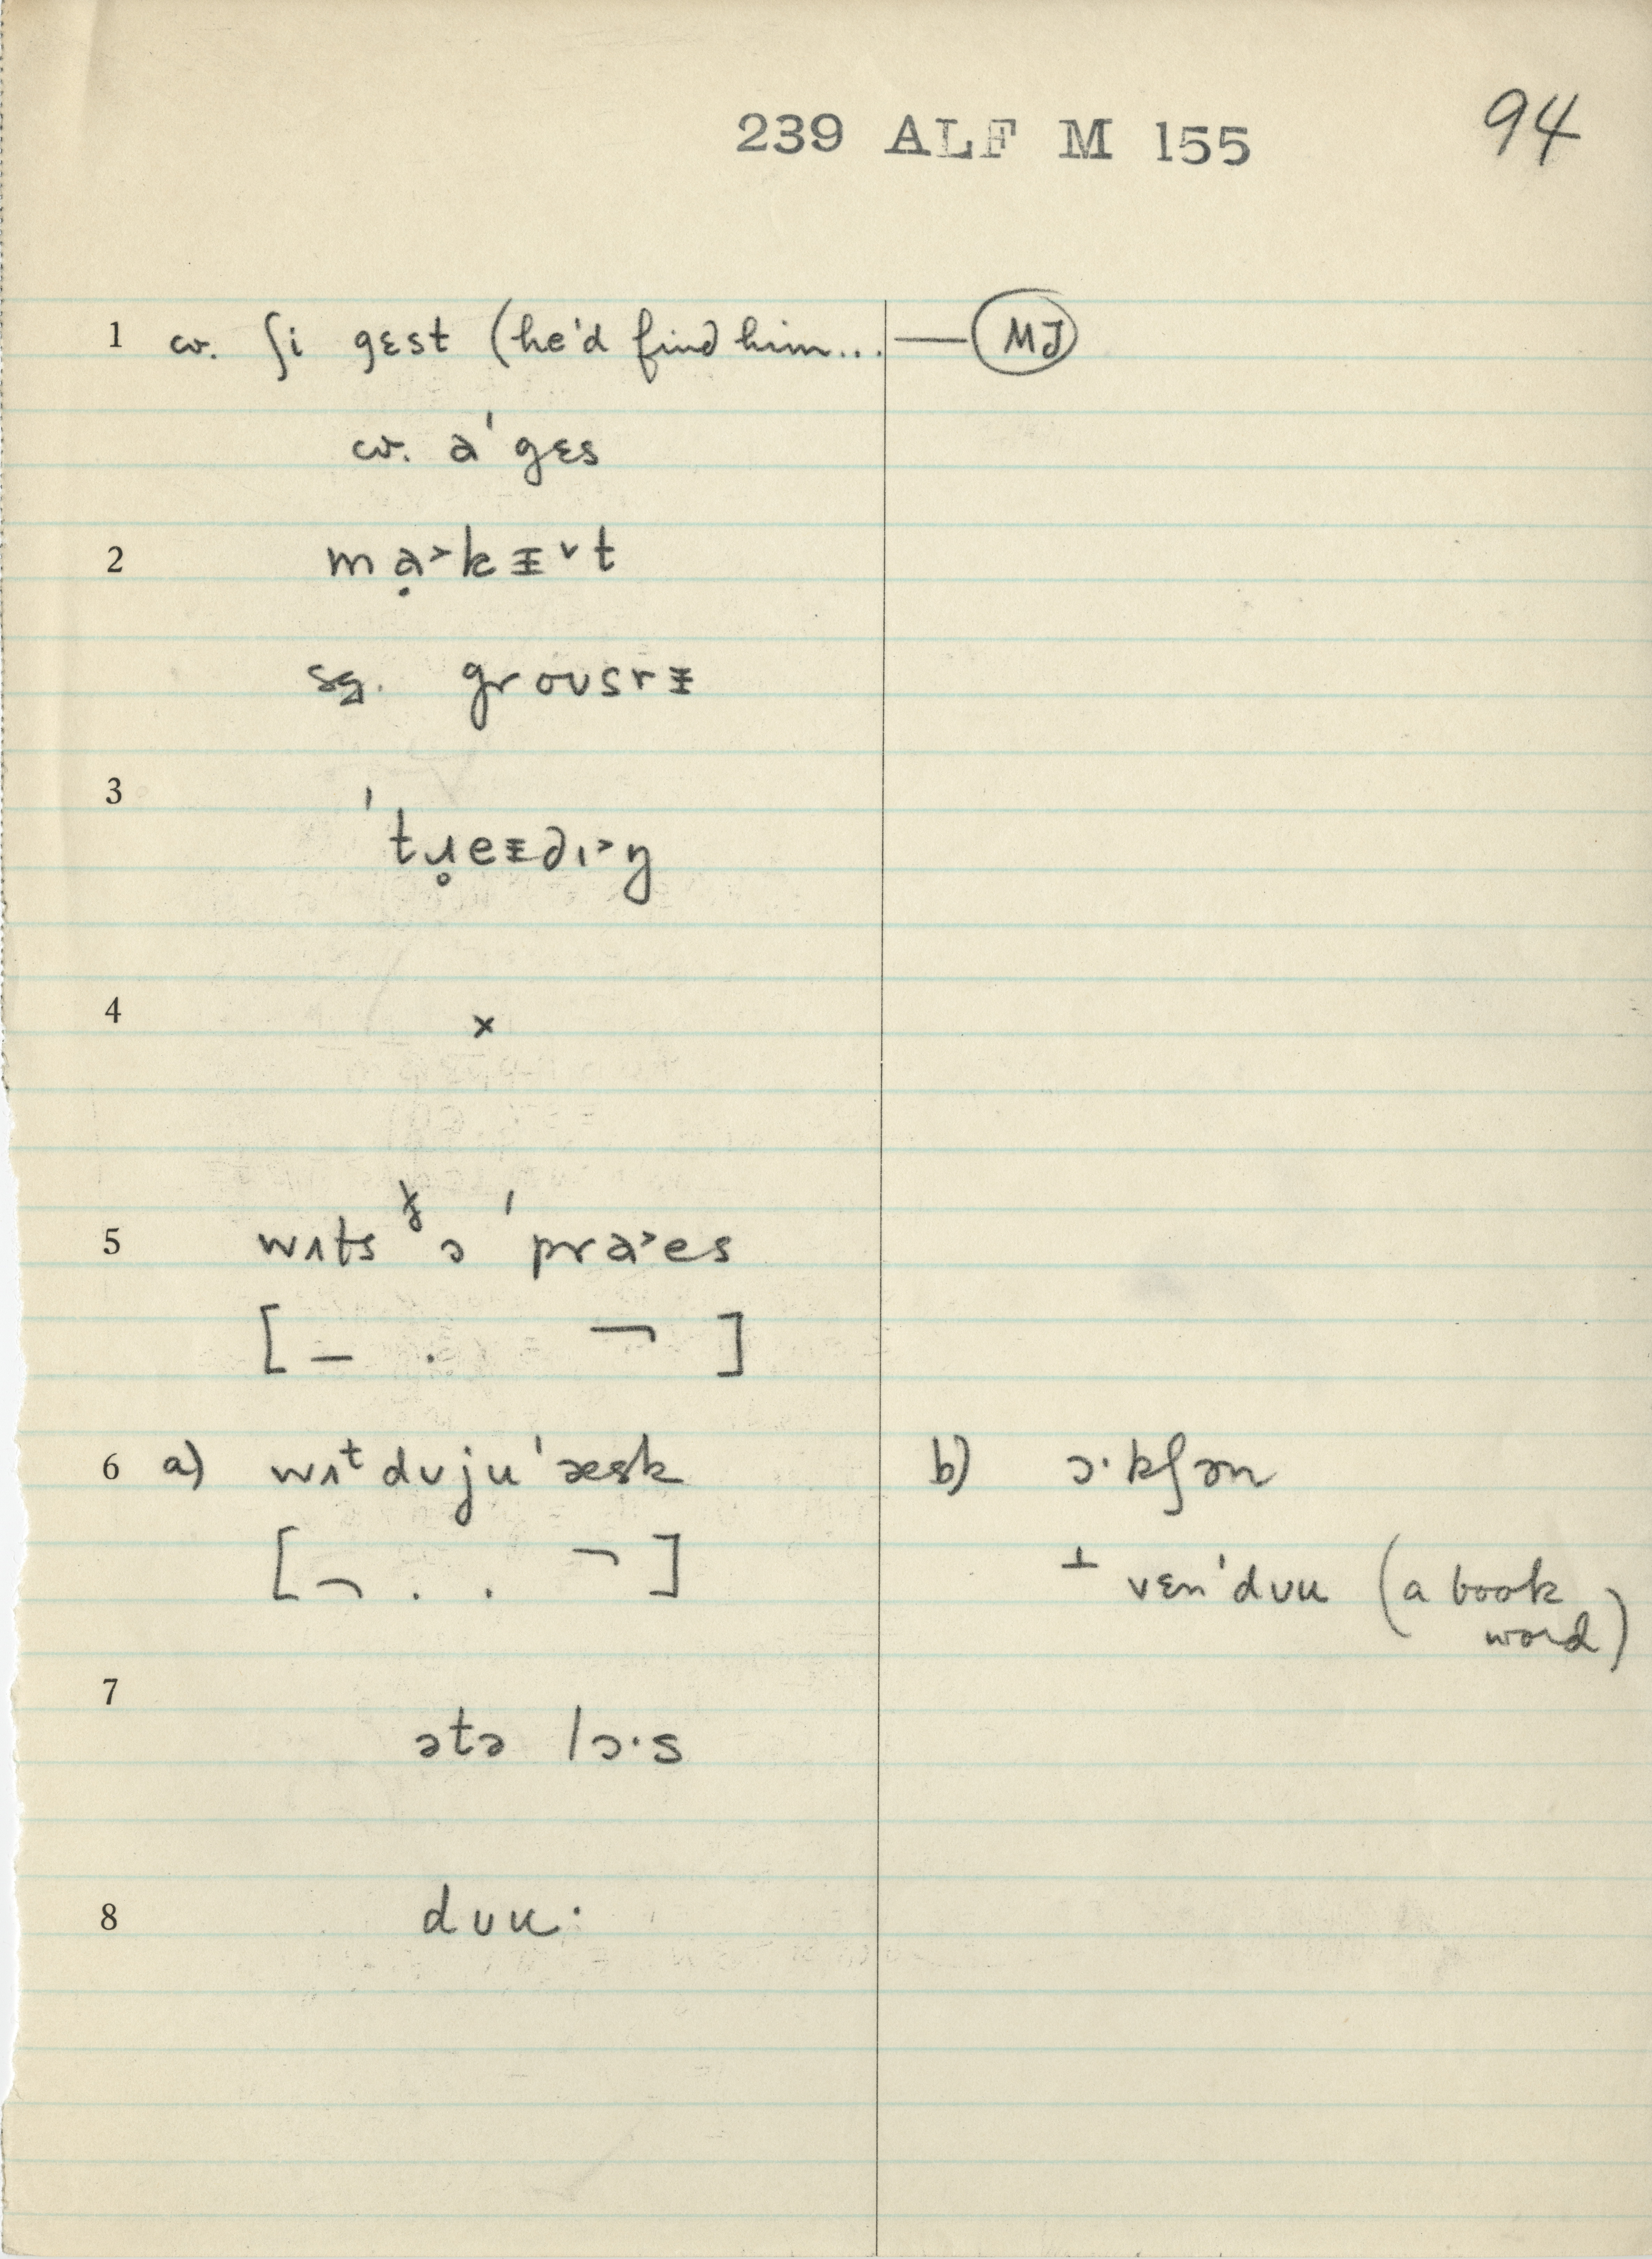 239 ALF M 155 94
1 cv. ʃi gɛst (he'd find him... — MJ
cv. a'gɛs
2 mạ˃kɪ̵˅t
sg. groʊsrɪ̵
3 'tɹ̥eɪ̵dɪ˃ŋ
4 x
5 wʌts ðə 'pra˃es
[ – . ¬ ]
6 a) wʌᵗdʊju'æsk b) ɔ·kʃən
[ ¬ . . ¬ ] ⊥ vɛn'dʊu (a book
word)
7 ətə lɔ·s
8 dʊu·